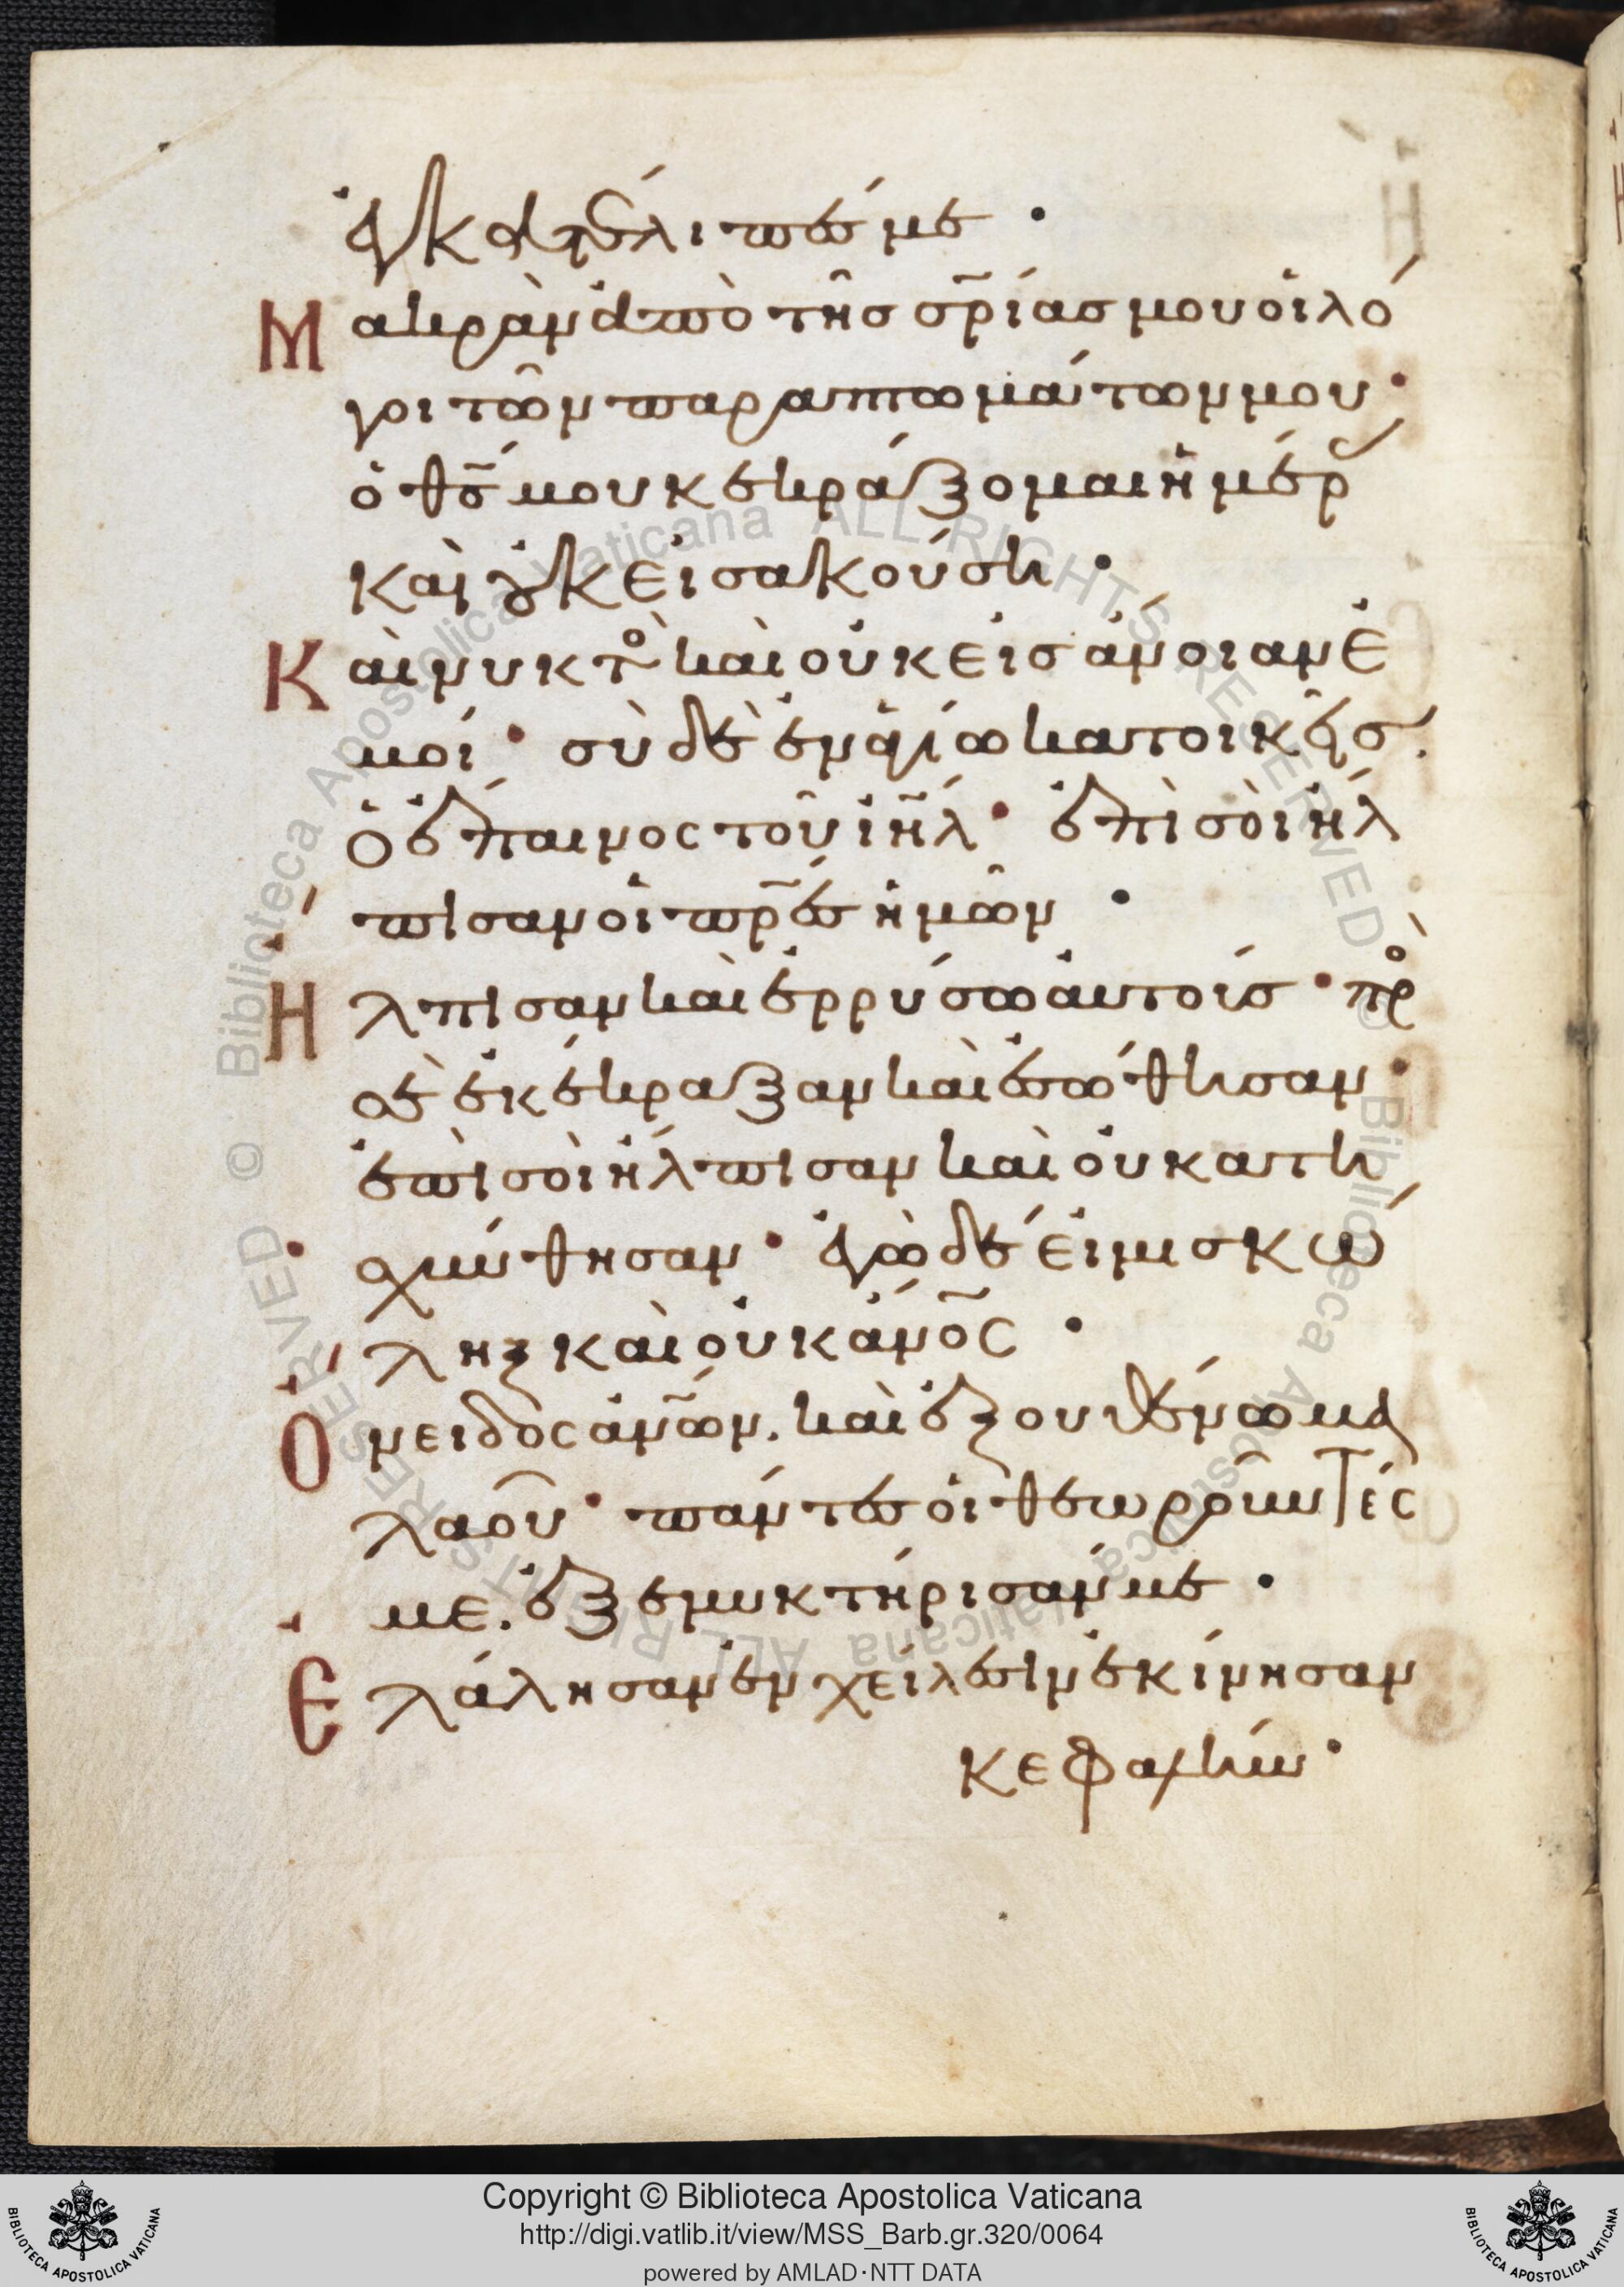 ἐγκατέλιπές με ·
Μακρὰν ἀπὸ τῆς σρίας μου οἱ λό
γοι τῶν παραπτωμάτων μου ·
ὁ θσ μου κεκράξομαι ἡμέρ
καὶ οὐκ εἰσακούση ·
Καὶ νυκτὸ καὶ οὐκ εἰς ἄνοιαν ἐ
μοί · σὺ δὲ ἐν ἁγίω κατοικεῖσ.
ὁ ἔπαινος τοῦ ιηλ · ἐπὶ σοὶ ἤλ
πισαν οἱ πρες ἡμῶν ·
Ἤλπισαν καὶ ἐρρύσω αὐτούσ · πρὸ
σὲ ἐκέκραξαν καὶ ἐσώθησαν ·
ἐπὶ σοὶ ἤλπισαν καὶ οὐ κατη
σχύνθησαν · ἐγὼ δέ εἰμι σκώ
ληξ καὶ οὐκ ἀνος ·
Ὄνειδος ἀνων. καὶ ἐξουθένωμα
λαοῦ · πάντες οἱ θεωροῦντές
με. ἐξεμυκτήρισάν με ·
Ἐλάλησαν ἐν χείλεσιν ἐκίνησαν
κεφαλήν ·
© Biblioteca Apostolica Vaticana ALL RIGHTS RESERVED
© Biblioteca Apostolica Vaticana ALL RIGHTS RESERVED
Copyright © Biblioteca Apostolica Vaticana
http://digi.vatlib.it/view/MSS_Barb.gr.320/0064
powered by AMLAD·NTT DATA
BIBLIOTECA APOSTOLICA VATICANA
BIBLIOTECA APOSTOLICA VATICANA